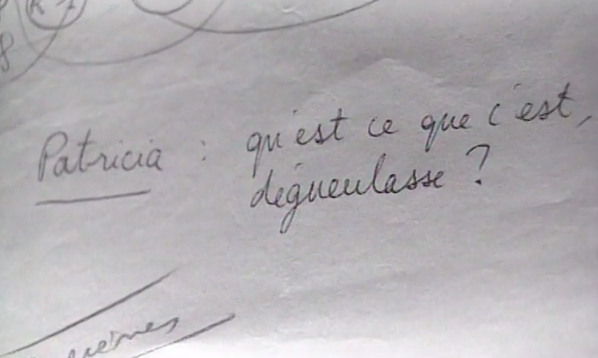 Patricia : qu'est ce que c'est,
dégueulasse ?